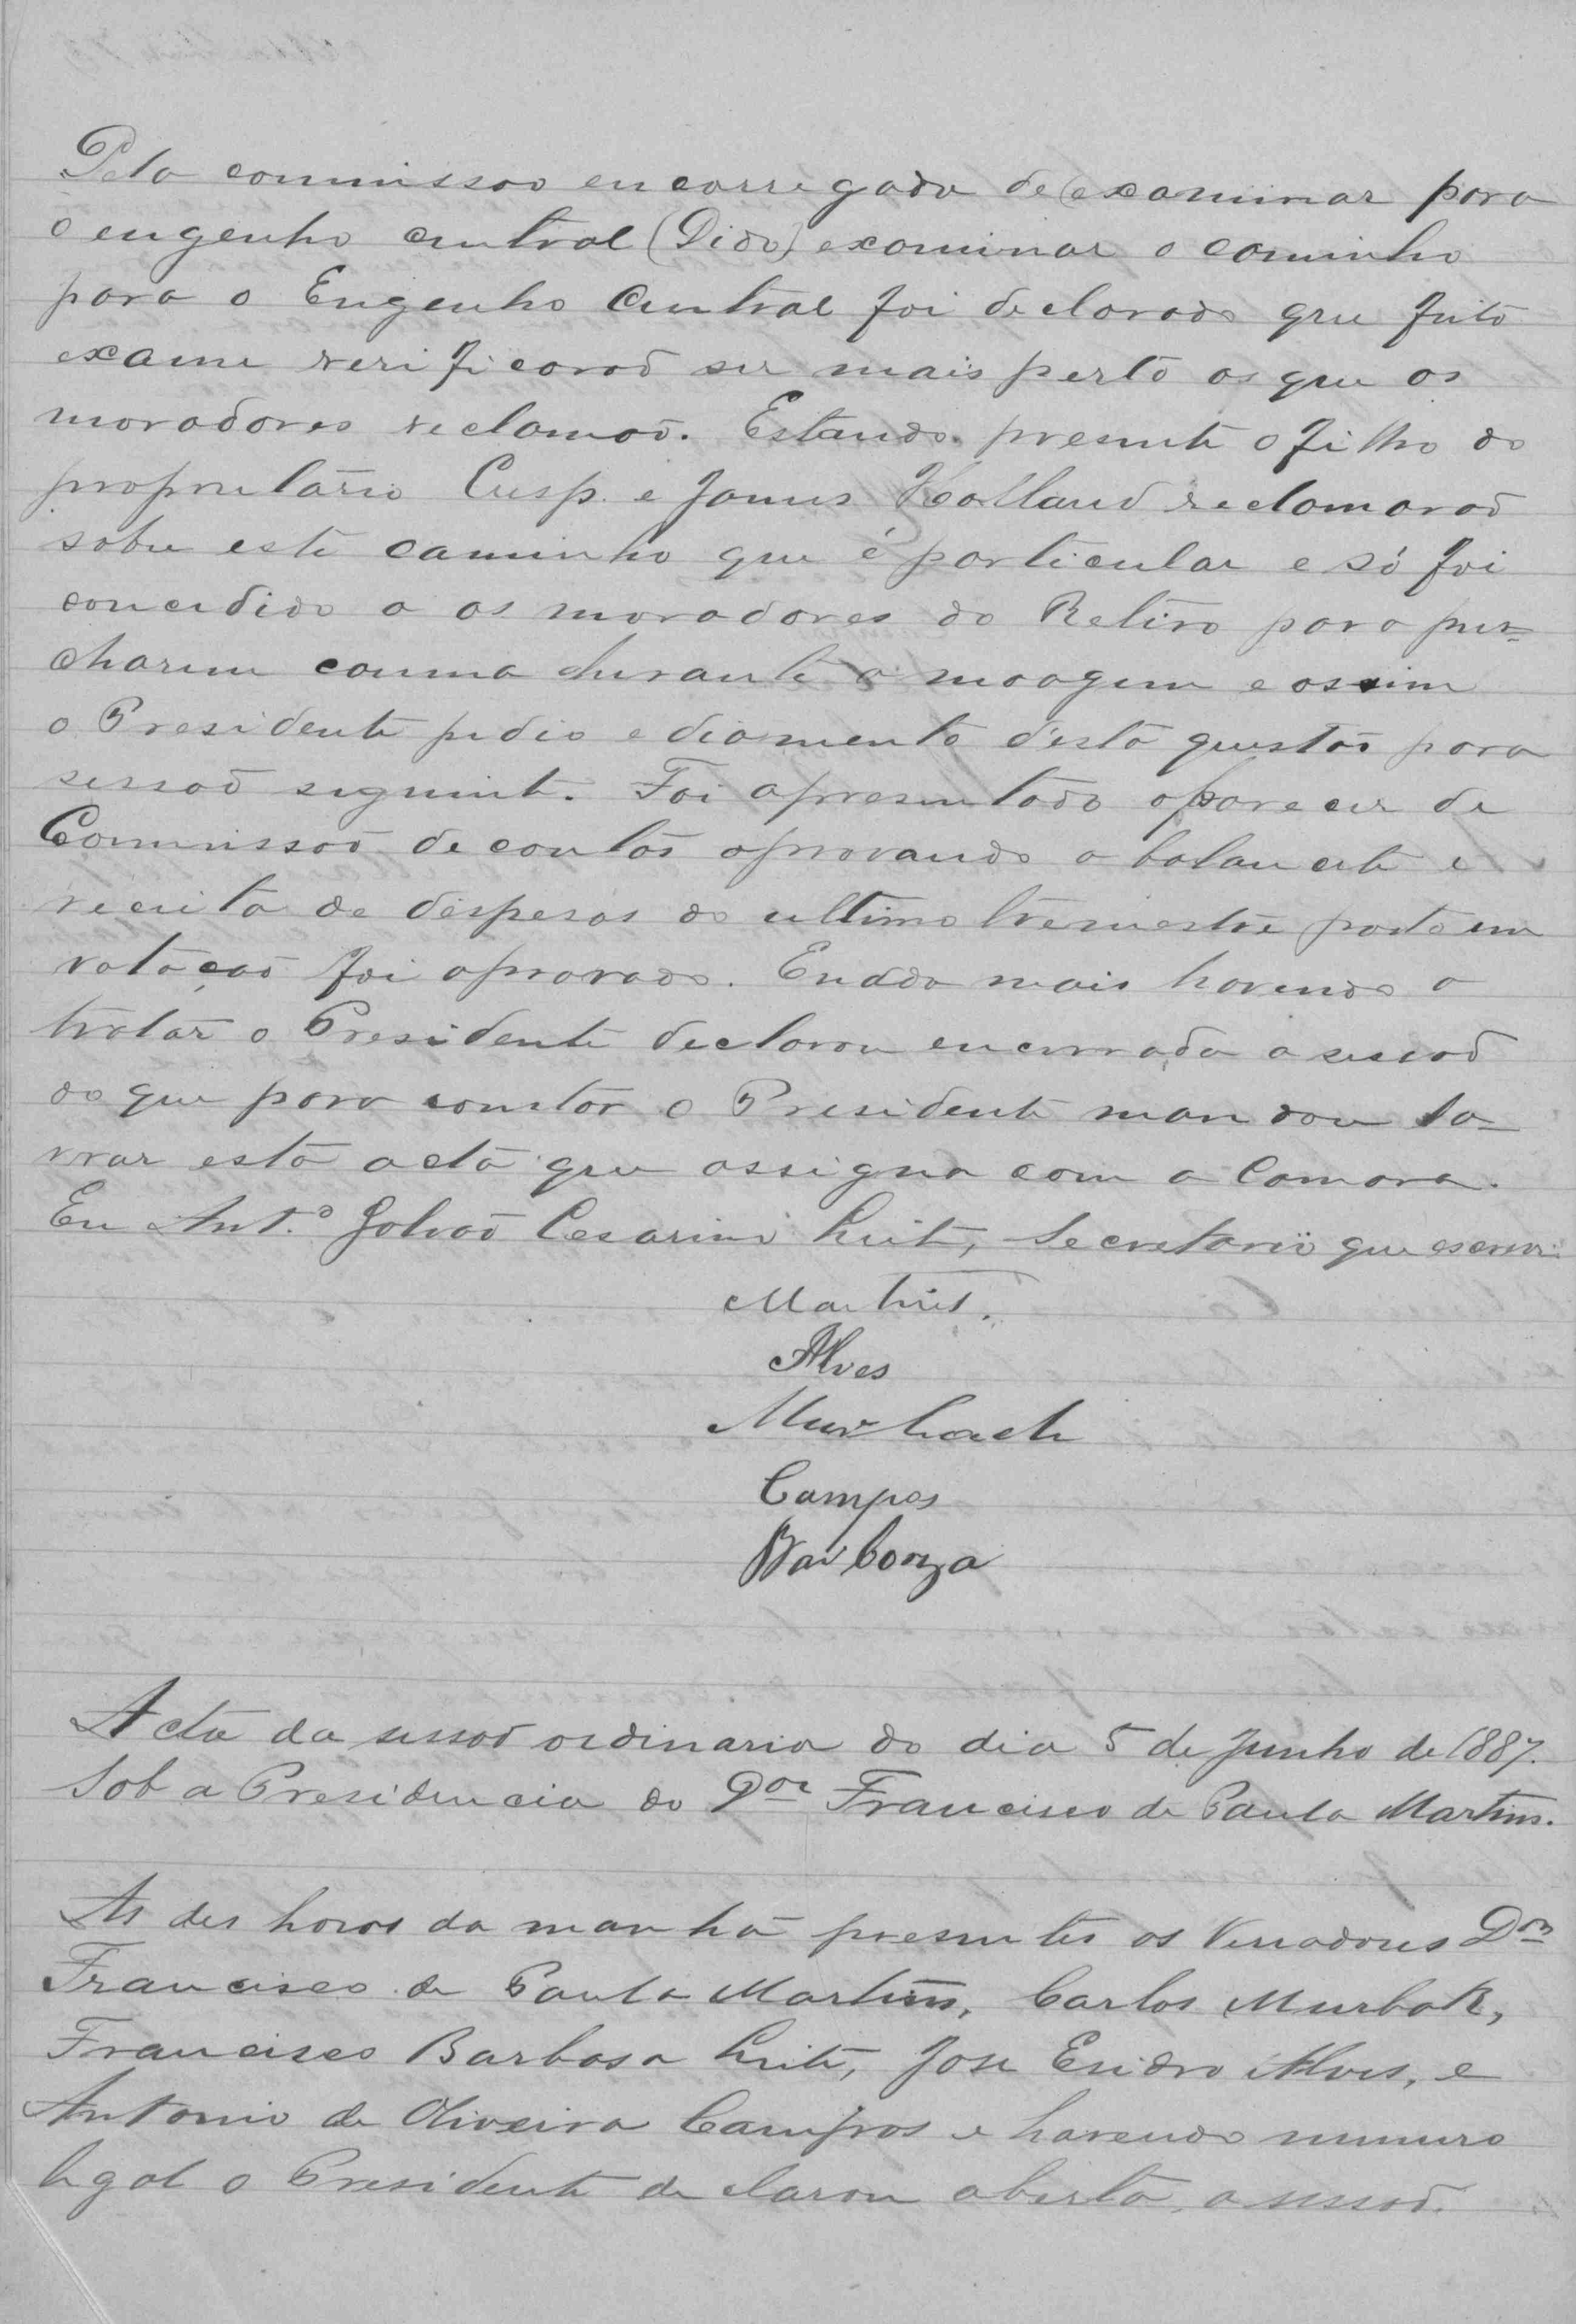 Pela commissaõ encarregada de examinar para
o engenho central (Dido) examinar o caminho
para o Engenho Central foi declarado que feito
exame verificaraõ ser mais perto os que os
moradores reclamaõ. Estando presente o filho do
proprietario Cusp. e James Holland reclamaraõ
sobre este caminho que é particular e só foi
concedido a os moradores do Retiro para pu-
charem canna durante a moagem e assim
o Presidente pedio ediamento d'esta questaõ para
sessaõ seguinte. Foi apresentado o parecer de
Commissaõ de contas aprovando o balancete e
receita de despesas do ultimo tremestre posto em
votaçaõ foi aprovado. E nada mais havendo a
tratar o Presidente declarou encerrada a sessaõ
do que para constar o Presidente mandou la-
vrar esta acta que assigna com a Camara.
Eu Ant.º Galvaõ Cesarino Leite, Secretario que escrevi
Martins.
Alves
Murbach
Campos
Barboza
Acta da sessaõ ordinaria do dia 5 de Junho de 1887.
Sob a Presidencia do Dor Francisco de Paula Martins.
As des horas da manhã presentes os Vereadores Dor
Francisco de Paula Martins, Carlos Murbak,
Francisco Barbosa Leite, Jose Esidro Alves, e
Antonio de Oliveira Campos e havendo numero
legal o Presidente declarou aberta a sessaõ.